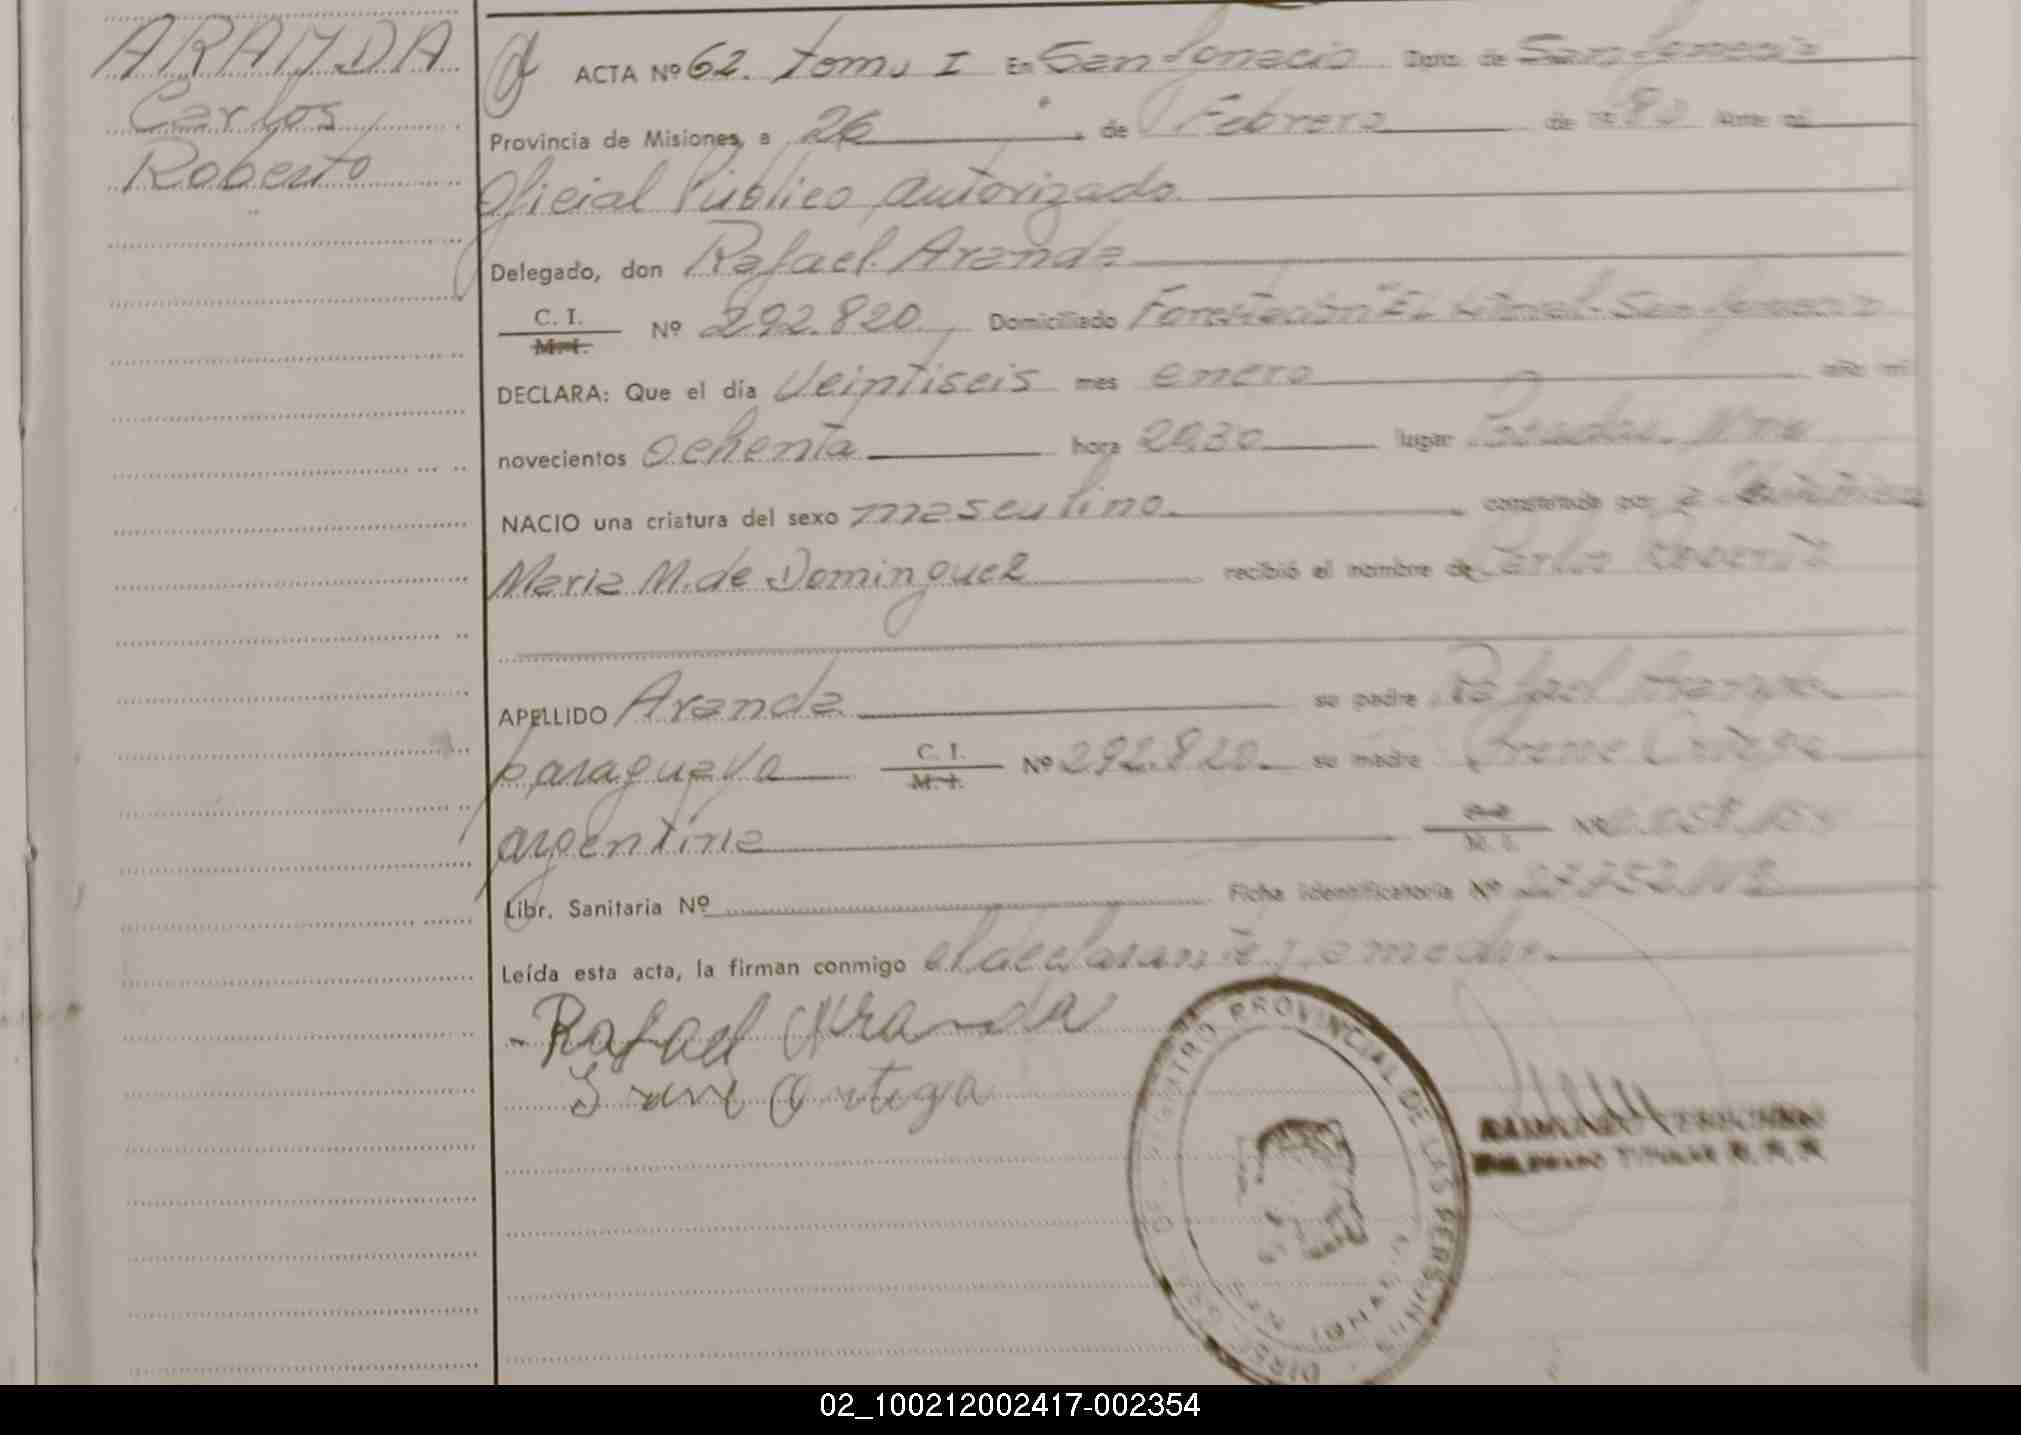 ARANDA
Carlos
Roberto
ACTA Nº 62. Tomo I En San Ignacio Dpto. de San Ignacio
Provincia de Misiones, a 26 de Febrero de 1980 Ante mí
Oficial Público Autorizado.
Delegado, don Rafael Aranda
C. I.
M. I.
Nº 292.820. Domiciliado Forestación "El San Ignacio
DECLARA: Que el día Veintiseis mes enero año mil
novecientos ochenta hora 20,30 lugar Posadas
NACIO una criatura del sexo masculino. constatado por
Maria M. de Dominguez recibió el nombre de Carlos Roberto
APELLIDO Aranda su padre Rafael Aranda
paraguayo C. I. Nº 292.820. su madre Ortega
M. I.
argentina M. I. Nº
Libr. Sanitaria Nº Ficha identificatoria Nº
Leída esta acta, la firman conmigo el declarante y la madre.
Rafael Aranda
Ortega
REGISTRO PROVINCIAL DE LAS PERSONAS
02_100212002417-002354